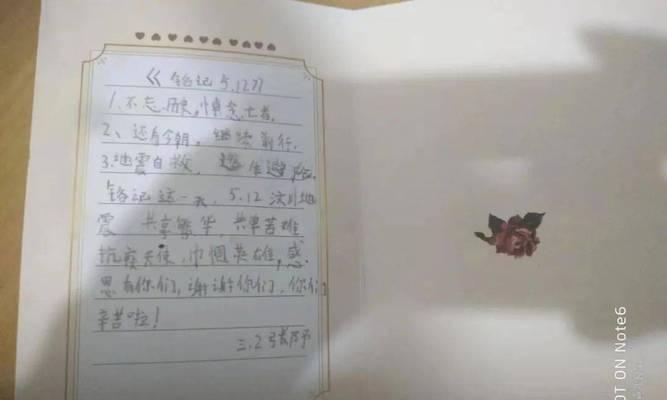 《铭记5.12》
1.不忘历史,悼念亡者。
2、还看今朝,继续前行.
3.地震自救,逃生避险.
铭记这一天,5.12汶川地
震 共享繁华,共单苦难
抗疫天使,巾帼英雄,感
恩有你们,谢谢你们,你们
辛苦啦!
三.2张
OT ON Note6